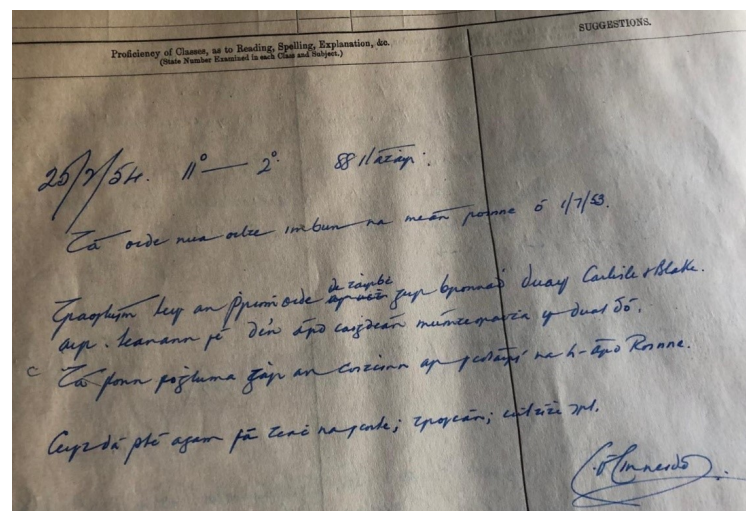 Proficiency of Classes, as to Reading, Spelling, Explanation, &c.
(State Number Examined in each Class and Subject.)
SUGGESTIONS.
25/2/54. 11° — 2°. 88 i láṫair.
Tá oide nua oilte i mbun na meán roinne ó 1/7/53.
leis an bpríoṁ oide de ṫairbe gur bronnaḋ duais Carlisle & Blake.
air. Leanann sé den árd caiġdeán múinteoireaċta is dual dó.
Tá fonn foġluma ṫar an ar scoláirí na h-árd Roinne.
Ceist dá plé agam fá teaċ na scoile; troscán; srl.